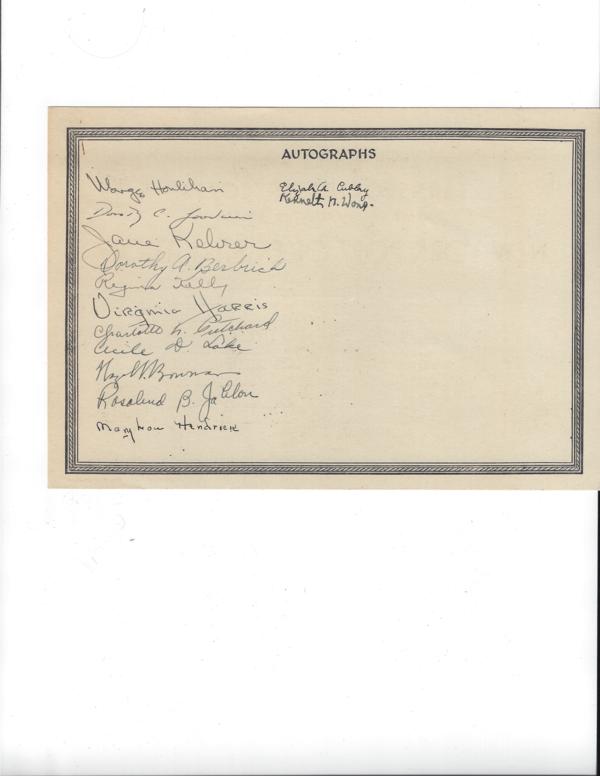 AUTOGRAPHS
Marge Houlihan
C.
Jane Kehrer
Dorothy A. Berbrich
Regina Kelly
Virginia Harris
Charlotte Pritchard
Cecile D. Lake
Hazel W. Bowman
Rosalind B. Jablon
Mary Lou Hendrick
Kenneth M. Wong.